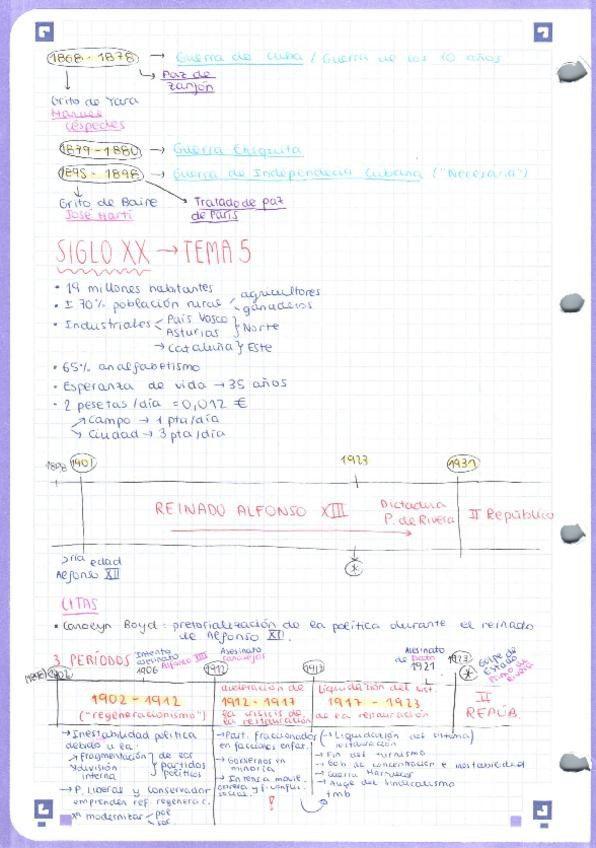 1868 - 1878 → Guerra de Cuba / Guerra de los 10 años
Paz de
Zanjón
Grito de Yara
Manuel
Céspedes
1879 - 1880 → Guerra Chiquita
1895 - 1898 → Guerra de Independencia Cubana ("Necesaria")
Grito de Baire
José Martí
Tratado de paz
de París
SIGLO XX → TEMA 5
• 19 millones habitantes
• ± 70% población rural agricultores
ganaderos
• Industriales País Vasco
Asturias } Norte
→ Cataluña } Este
• 65% analfabetismo
• Esperanza de vida → 35 años
• 2 pesetas / día = 0,012 €
Campo → 1 pta/día
Ciudad → 3 pta/día
1898 1901 1923 1931
REINADO ALFONSO XIII
Dictadura
P. de Rivera
II República
edad
Alfonso XII
CITAS
• Carolyn Boyd: pretorialización de la política durante el reinado
de Alfonso XI.
3 PERÍODOS
Intento
asesinato
1906 Alfonso XIII
Asesinato
Canalejas
Asesinato
de Dato
1921
1923
Golpe de
Estado
Primo de
Rivera
1902 1912 1917
1902 - 1912
("regeneracionismo")
aceleración de
1912 - 1917
la crisis de
la restauración
Liquidación del sist.
1917 - 1923
de la restauración
II
REPÚB.
→ Inestabilidad política
debido a la:
Fragmentación
y división
interna
de los
partidos
políticos
→ P. liberal y conservador
emprenden ref. regenerac.
modernizar
→ Part. fraccionados
en facciones enfar.
→ Gobiernos en
minoría
→ Intensa movil.
obrera y conflic.
social.
!
(→ Liquidación del sistema)
restauración
→ Fin del turnismo
→ Gob de concentración e inestabilidad
→ Guerra Marruecos
→ Auge del sindicalismo
tmb